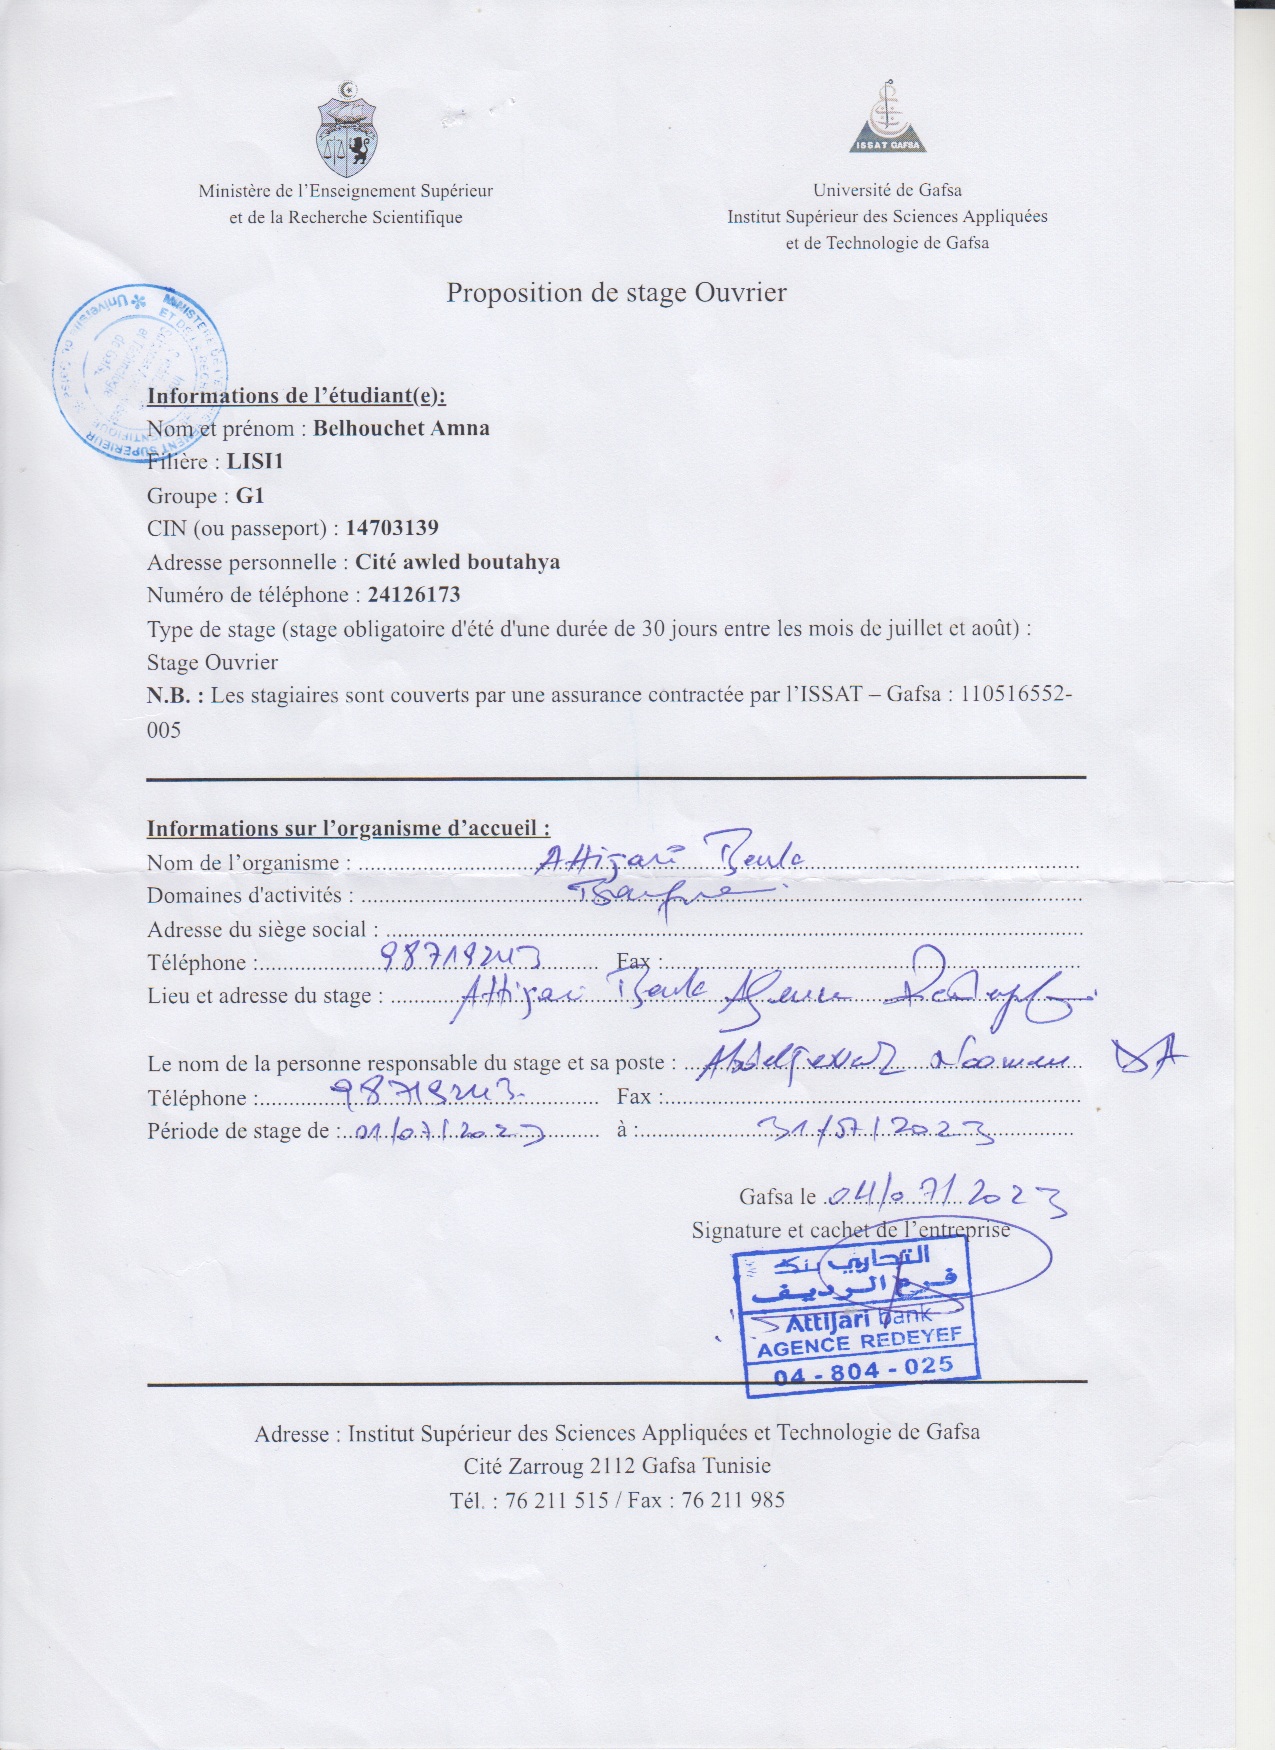 ISSAT GAFSA
Ministère de l'Enseignement Supérieur
et de la Recherche Scientifique
Université de Gafsa
Institut Supérieur des Sciences Appliquées
et de Technologie de Gafsa
Proposition de stage Ouvrier
Informations de l'étudiant(e):
Nom et prénom : Belhouchet Amna
Filière : LISI1
Groupe : G1
CIN (ou passeport) : 14703139
Adresse personnelle : Cité awled boutahya
Numéro de téléphone : 24126173
Type de stage (stage obligatoire d'été d'une durée de 30 jours entre les mois de juillet et août) :
Stage Ouvrier
N.B. : Les stagiaires sont couverts par une assurance contractée par l'ISSAT – Gafsa : 110516552-
005
Informations sur l'organisme d'accueil :
Nom de l'organisme : Attijari Bank
Domaines d'activités :
Adresse du siège social :
Téléphone : 98719243 Fax :
Lieu et adresse du stage : Attijari Bank Agence
Le nom de la personne responsable du stage et sa poste :
Téléphone : 98719243 Fax :
Période de stage de : 01/07/2023 à : 31/07/2023
Gafsa le 04/07/2023
Signature et cachet de l'entreprise
التجاري بنك
فرع الرديف
Attijari bank
AGENCE REDEYEF
04 - 804 - 025
Adresse : Institut Supérieur des Sciences Appliquées et Technologie de Gafsa
Cité Zarroug 2112 Gafsa Tunisie
Tél. : 76 211 515 / Fax : 76 211 985